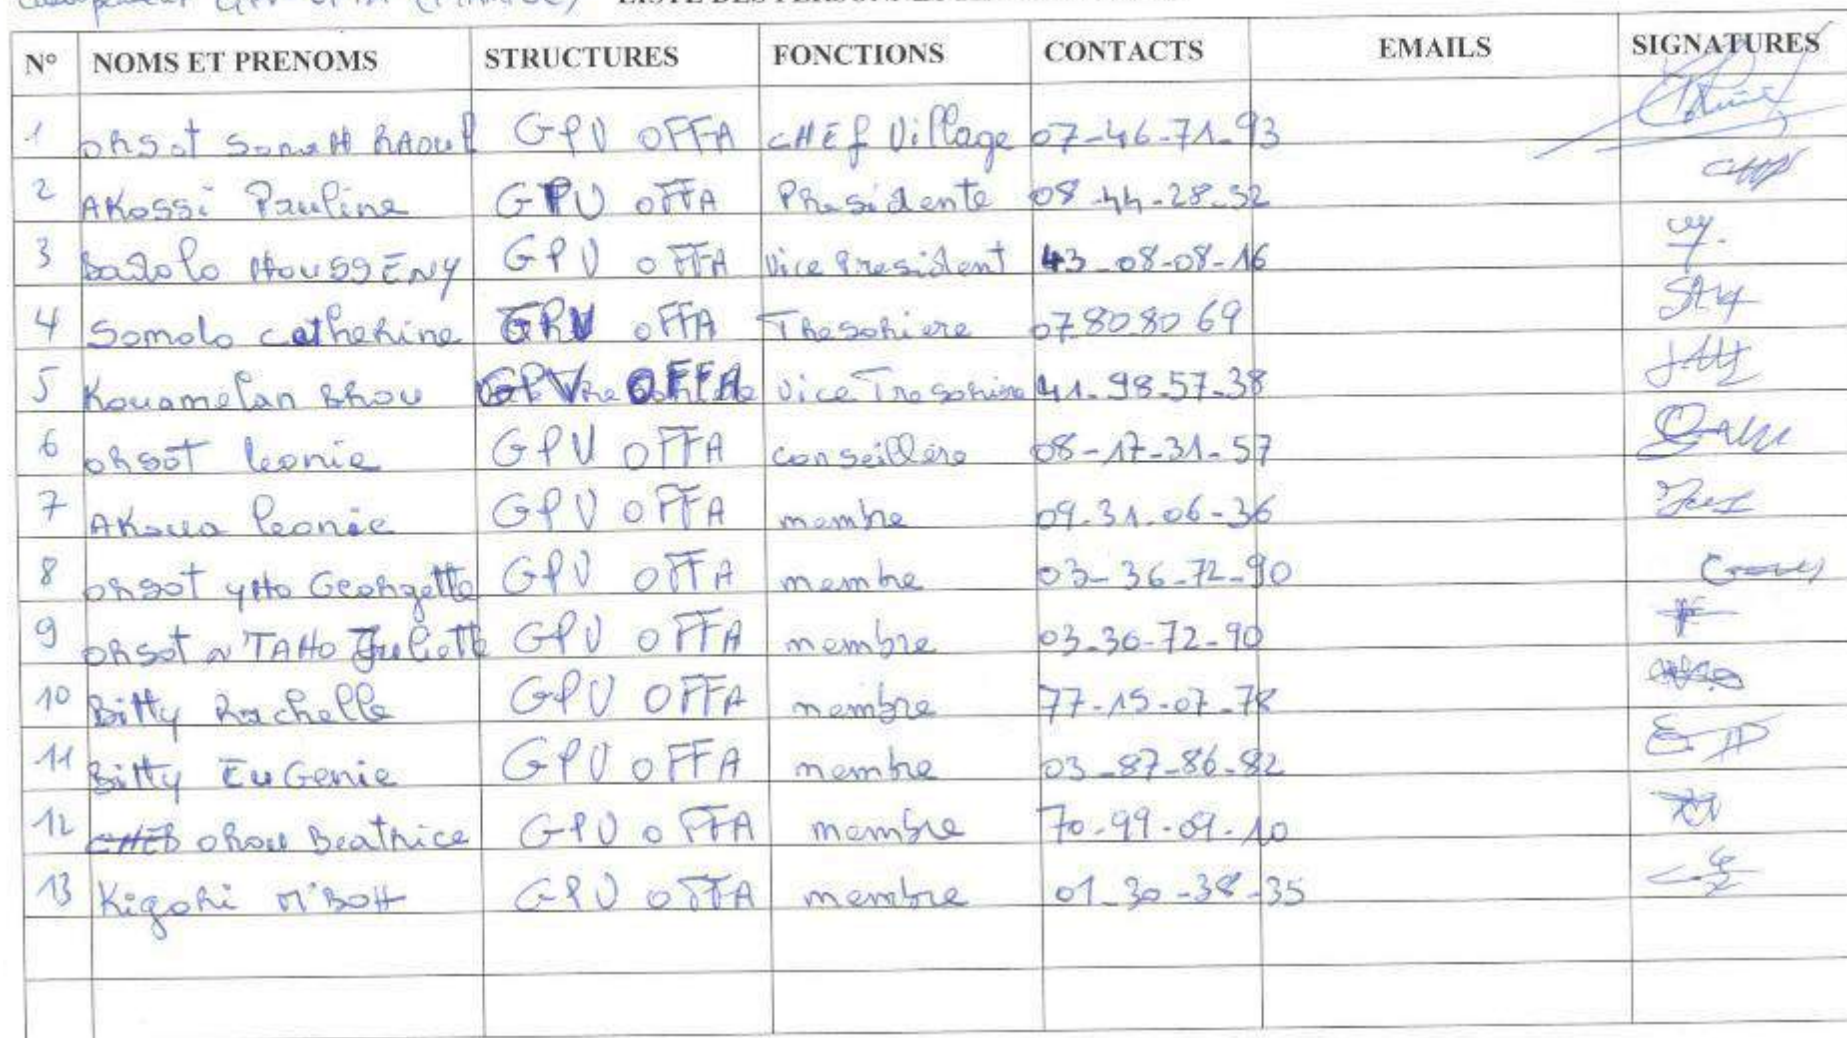 GPV OFFA
LISTE DES PERSONNES
N° NOMS ET PRENOMS STRUCTURES FONCTIONS CONTACTS EMAILS SIGNATURES
1 ORSOT RAOUL GPV OFFA CHEF Village 07-46-71-93
2 AKOSSI Pauline GPV OFFA PRésidente 08-44-28-32
3 HOUSSENY GPV OFFA Vice President 43-08-08-16
4 Somolo catherine GPV OFFA Thesoriere 07808069
5 Kouamelan GPV OFFA Vice 41-98-57-38
6 ORSOT leonie GPV OFFA conseillère 08-17-31-57
7 AKOUA leonie GPV OFFA membre 09.31.06-36
8 ORSOT Georgette GPV OFFA membre 03-36-72-90
9 ORSOT N'TAHO Juliette GPV OFFA membre 03-36-72-90
10 Bitty Rachelle GPV OFFA membre 77-15-07-78
11 Bitty EuGenie GPV OFFA membre 03-87-86-82
12 Beatrice GPV OFFA membre 70-99-09-10
13 Kigohi M'BOH GPV OFFA membre 01-30-38-35